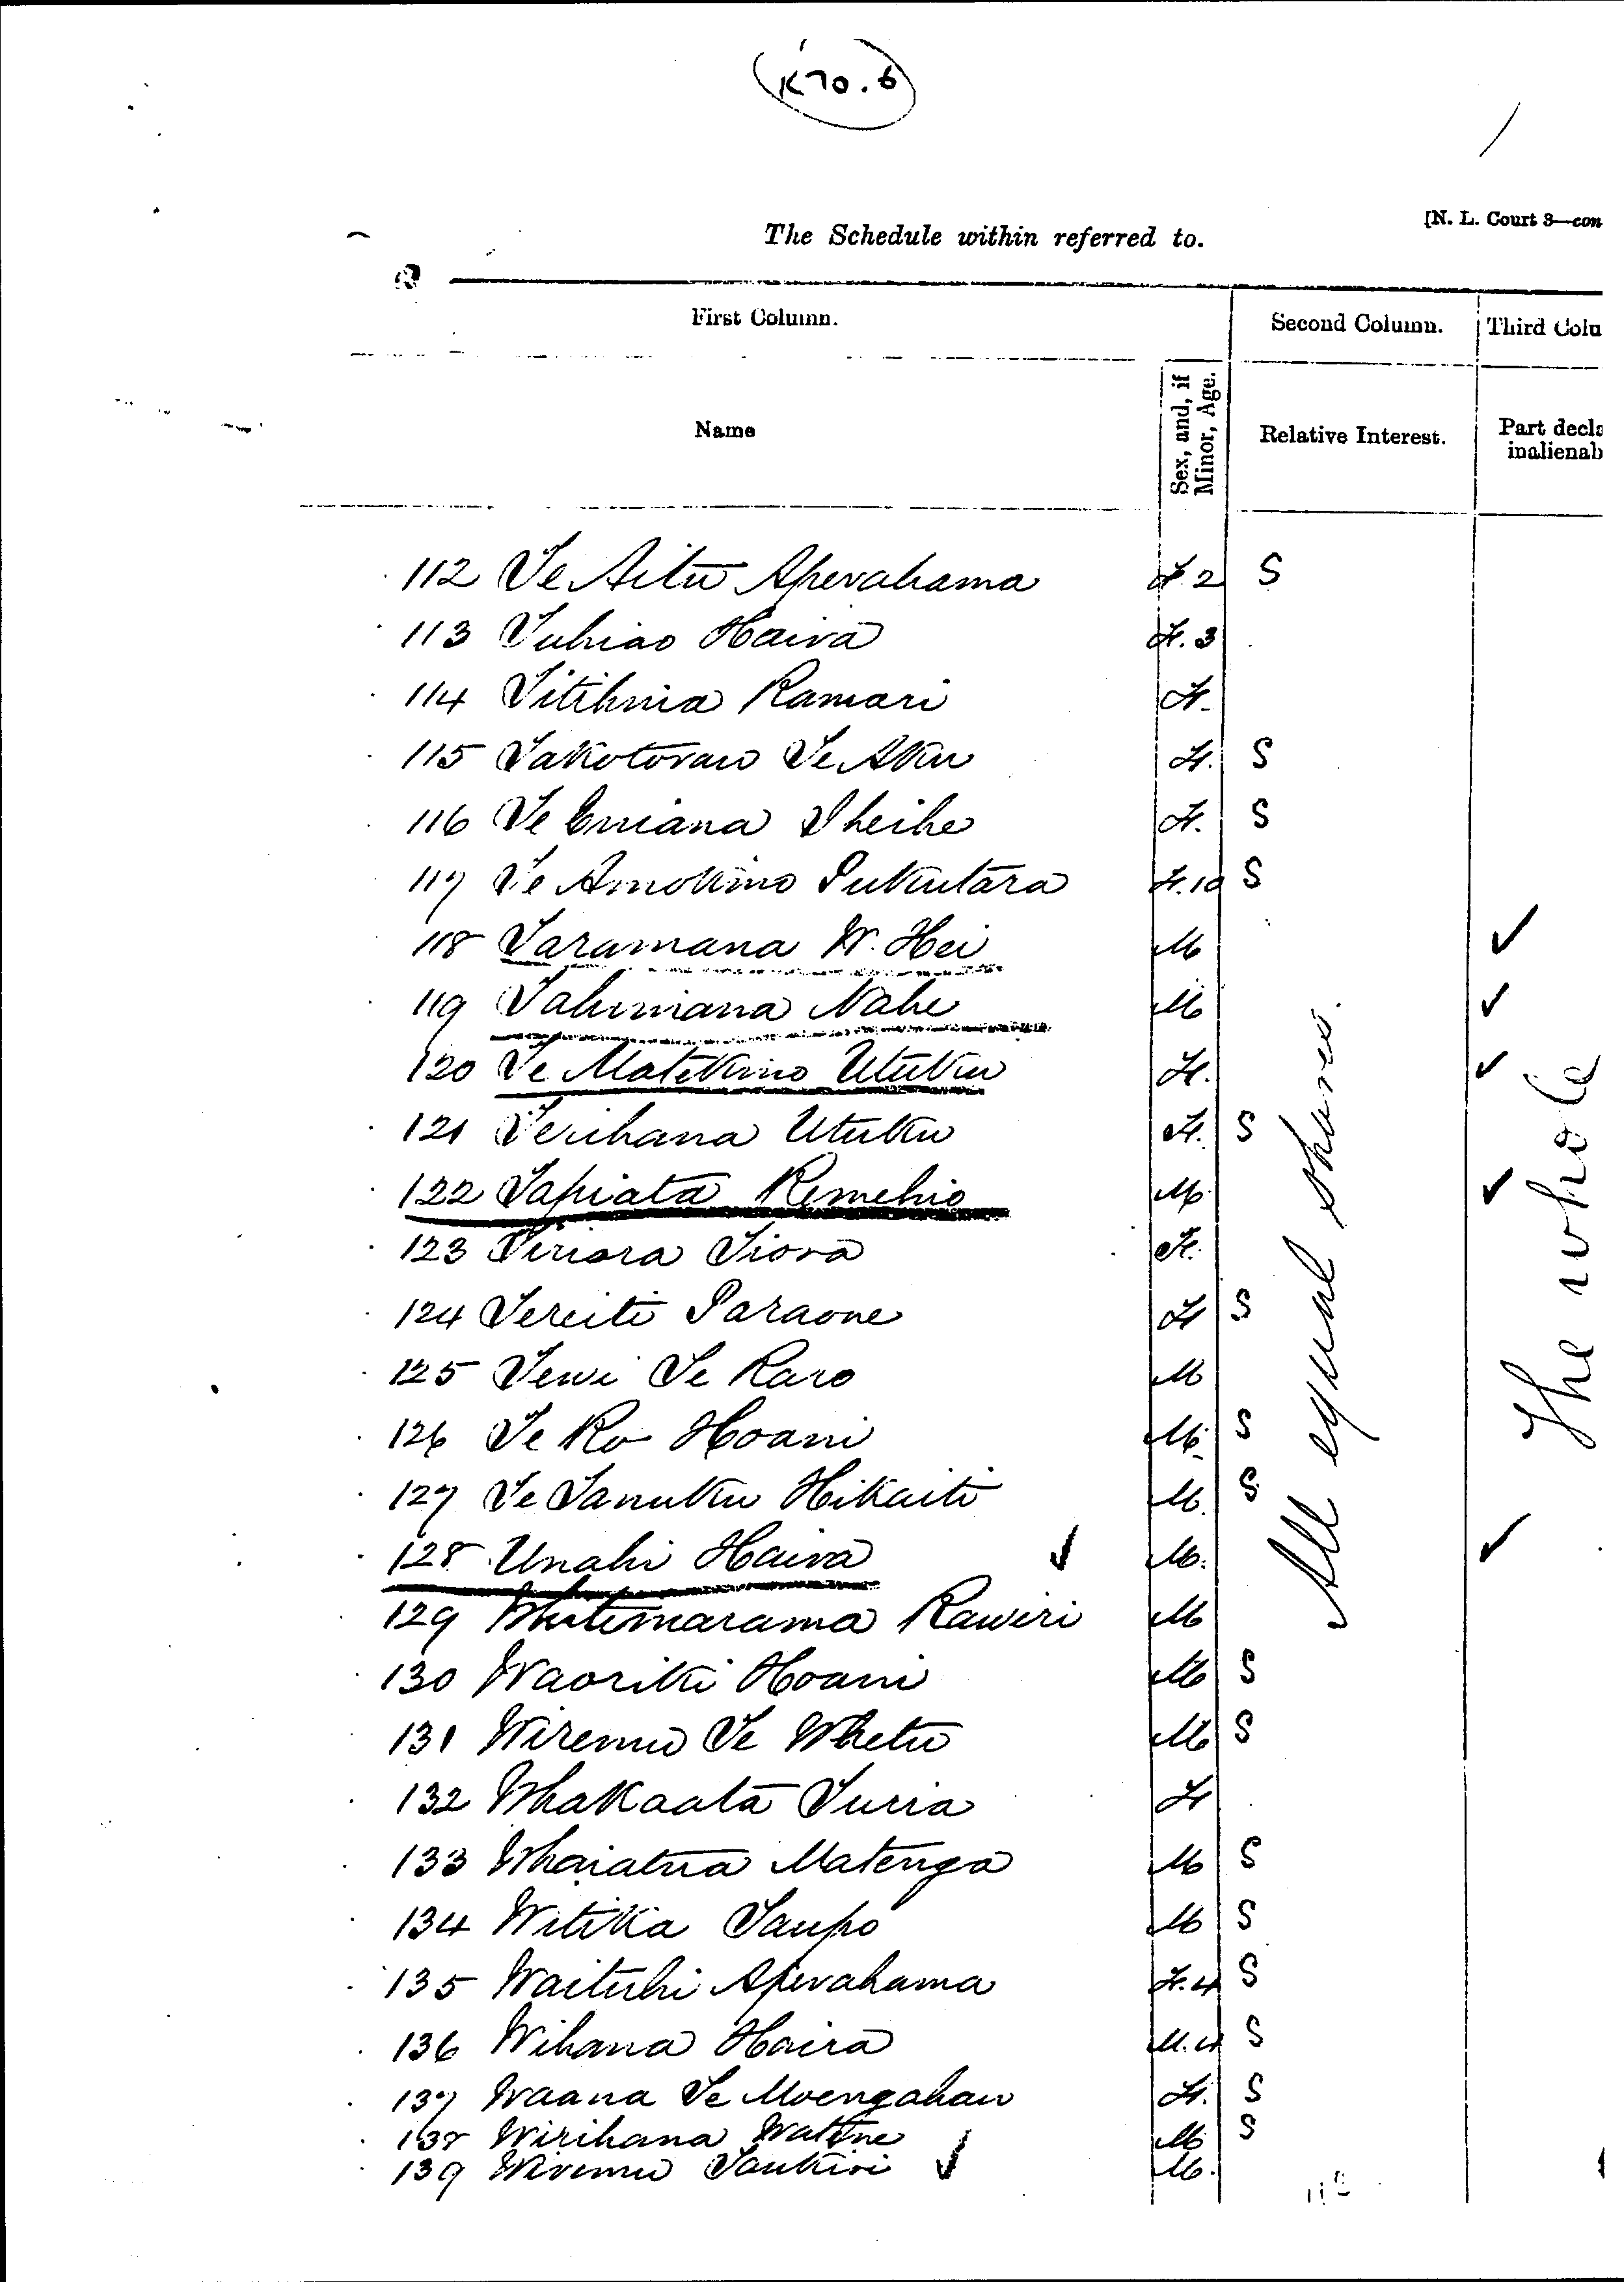 K70.6
[N. L. Court 3—con
The Schedule within referred to.
First Column. Second Column. Third Colu
Name Sex, and, if Minor, Age. Relative Interest. Part decla inalienab
112 Te Aitu Aperahama F. 2 S
113 Tuhiao Haira F. 3
114 Titihuia Ramari F.
115 Takotorau Te Aku F. S
116 Te Emiana Iheihe F. S
117 Te Amokimo Pukutara F. 10 S
118 Taramana W. Hei M ✓
119 Tahumana Nahe M ✓
120 Te Matekino Utuku F. ✓
121 Terihana Utuku F. S
122 Tapiata Remehio M ✓
123 Tiriara Tiora F.
124 Tereiti Paraone F S
125 Tewi Te Raro M
126 Te Ro Hoani M. S
127 Te Tanuku Hikaiti M. S
128 Unahi Haira ✓ M. ✓
129 Whitimarama Rawiri M
130 Waoriki Hoani M S
131 Wiremu Te Whetu M S
132 Whakaata Turia F
133 Whaiatua Matenga M S
134 Witika Taupo M S
135 Waituhi Aperahama F. 4 S
136 Wihana Haira M. 4 S
137 Waana Te Moengahau F. S
138 Wirihana Watene M S
139 Wiremu Taukiri ✓ M.
All equal shares.
The whole